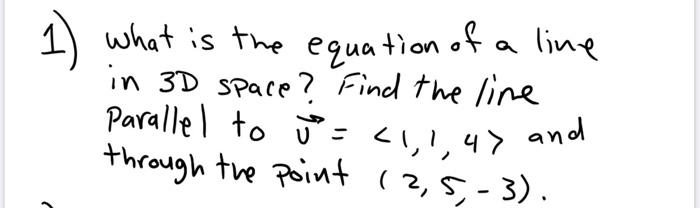 1) what is the equation of a line
in 3D space? Find the line
Parallel to v⃗ = <1,1,4> and
through the point (2,5,-3).